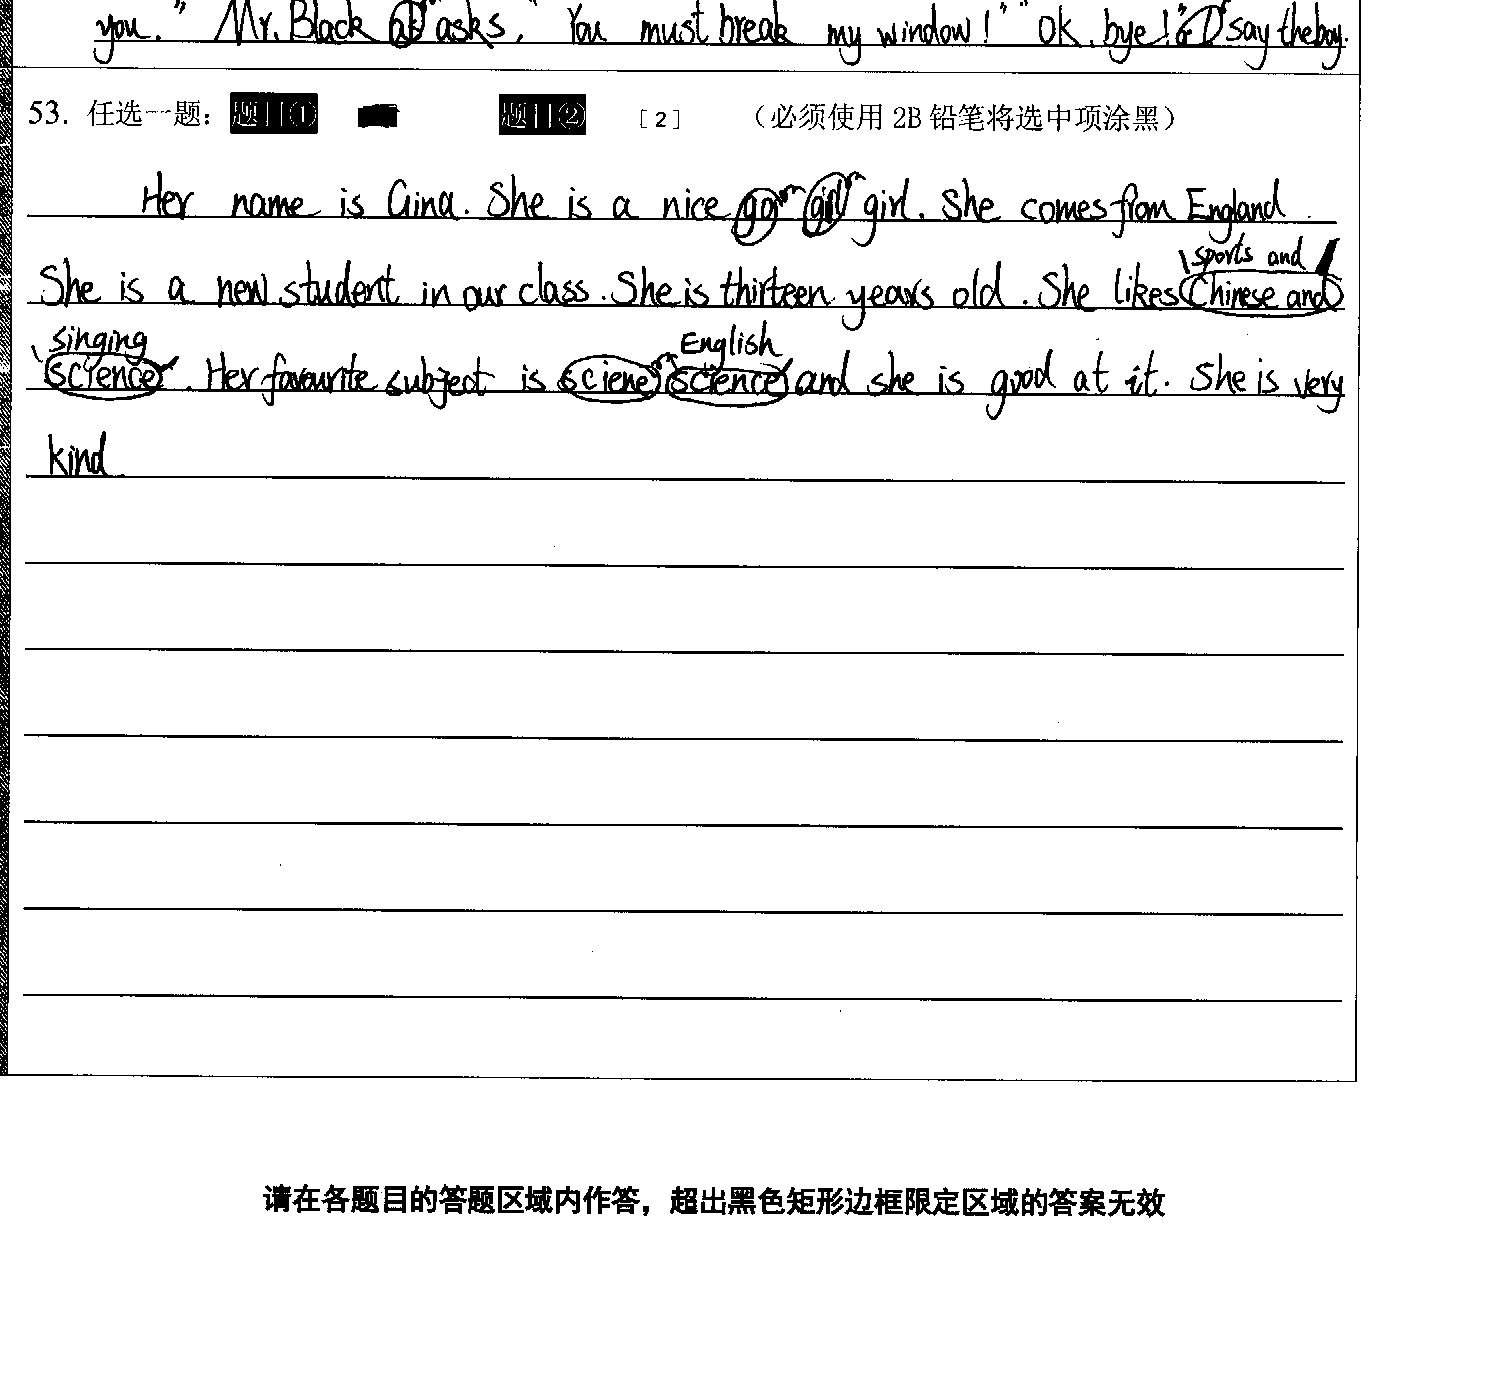 you." Mr. Black as asks. "You must break my window!" "Ok. bye!" I say the boy.
53. 任选一题： 题目① 题目② [2] （必须使用 2B 铅笔将选中项涂黑）
Her name is Gina. She is a nice go gil girl. She comes from England
sports and
She is a new student in our class. She is thirteen years old. She likes Chinese and
singing English
science. Her favourite subject is sciene science and she is good at it. She is very
kind.
请在各题目的答题区域内作答，超出黑色矩形边框限定区域的答案无效